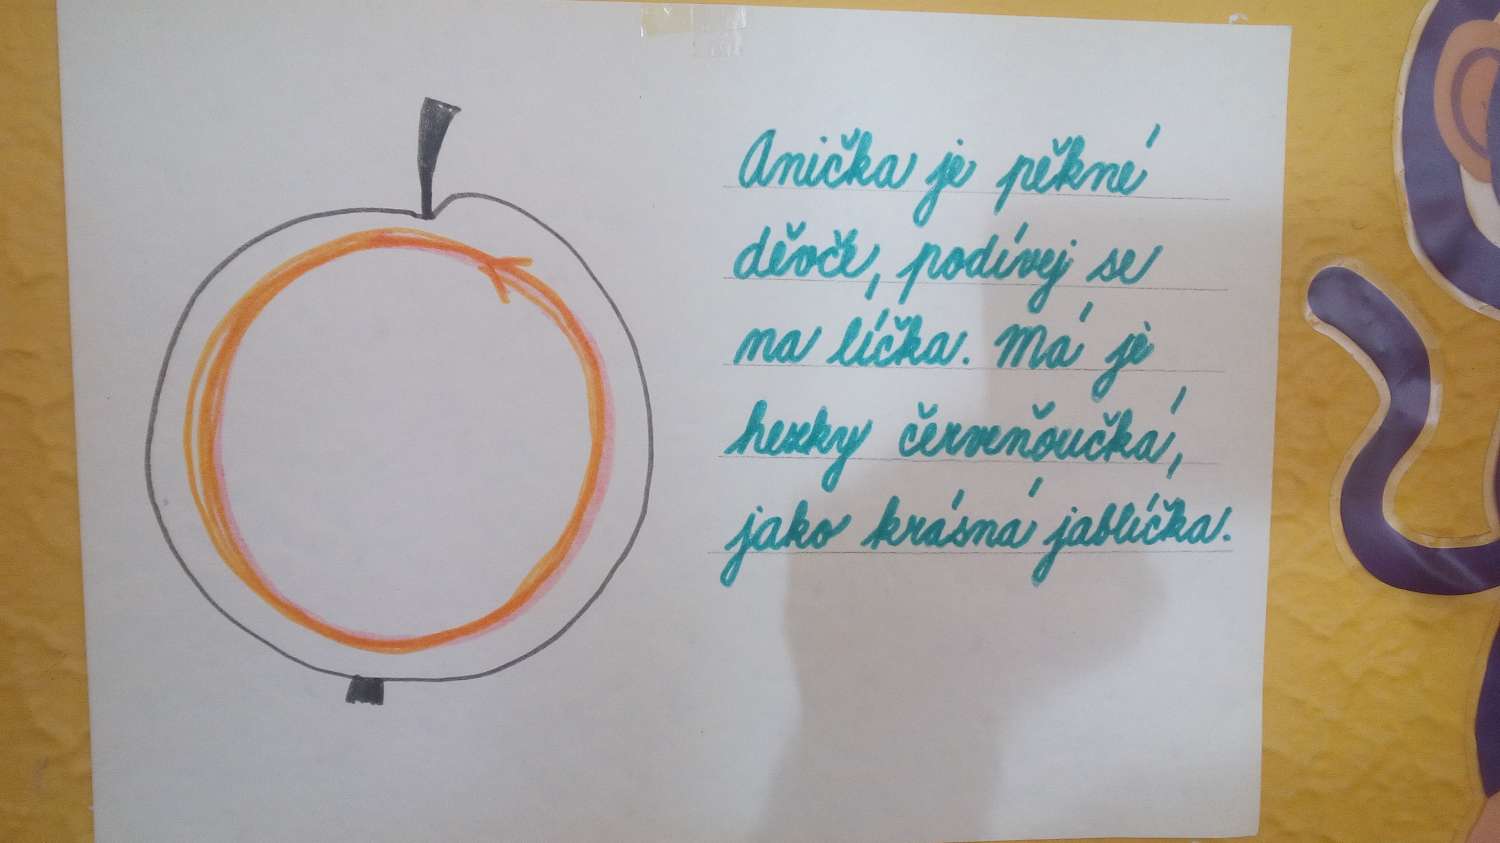 Anička je pěkné
děvče, podívej se
na líčka. Má je
hezky červeňoučká,
jako krásná jablíčka.